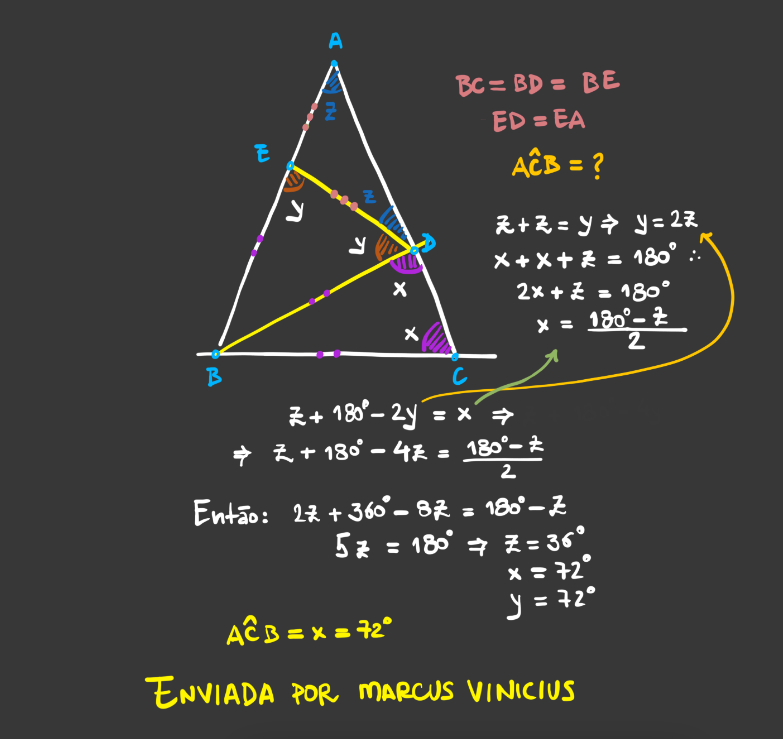 A
z
BC = BD = BE
ED = EA
AĈB = ?
E
y
z
y
D
x
x
B
C
z + z = y ⇒ y = 2z
x + x + z = 180° ∴
2x + z = 180°
x = 180° - z
2
z + 180° - 2y = x ⇒
⇒ z + 180° - 4z = 180° - z
2
Então: 2z + 360° - 8z = 180° - z
5z = 180° ⇒ z = 36°
x = 72°
y = 72°
AĈB = x = 72°
ENVIADA POR MARCUS VINICIUS